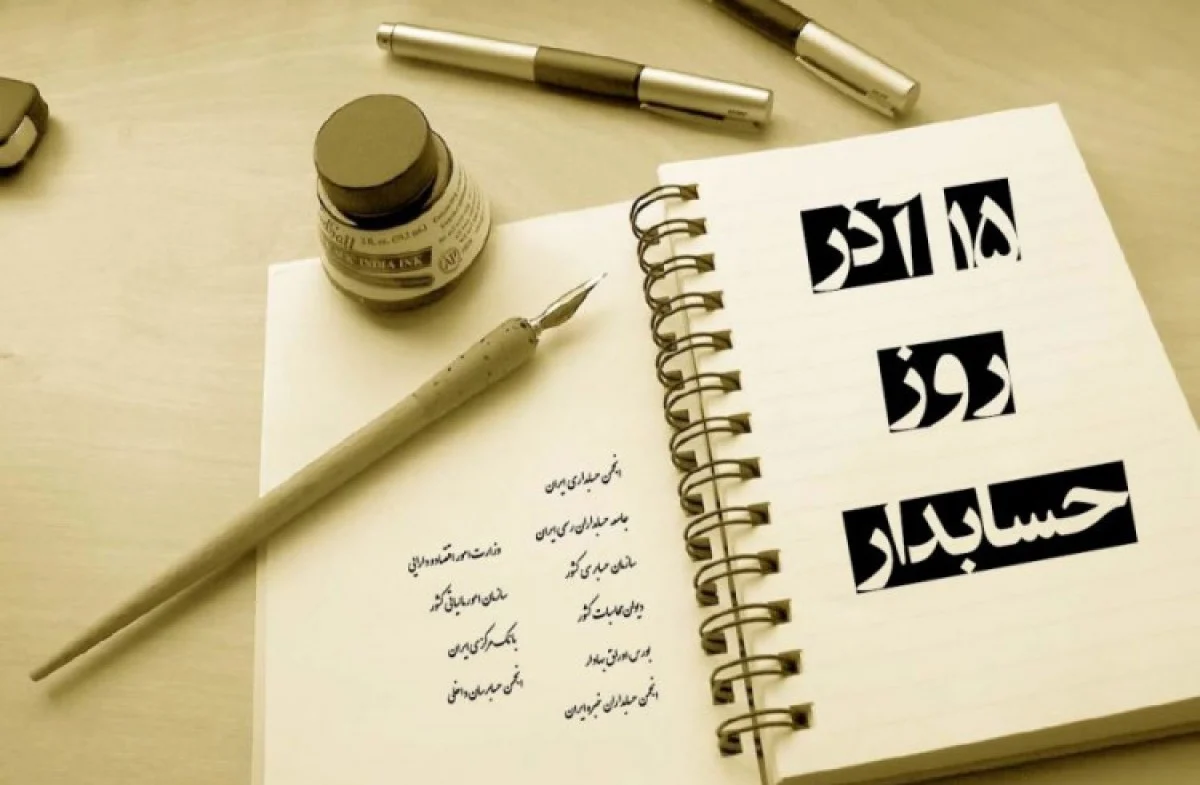 ۱۵ آذر
روز
حسابدار
انجمن حسابداری ایران
جامعه حسابداران رسمی ایران
سازمان حسابرسی کشور
دیوان محاسبات کشور
بورس اوراق بهادار
انجمن حسابداران خبره ایران
وزارت امور اقتصاد و دارایی
سازمان امور مالیاتی کشور
بانک مرکزی ایران
انجمن حسابرسان داخلی
INDIA INK